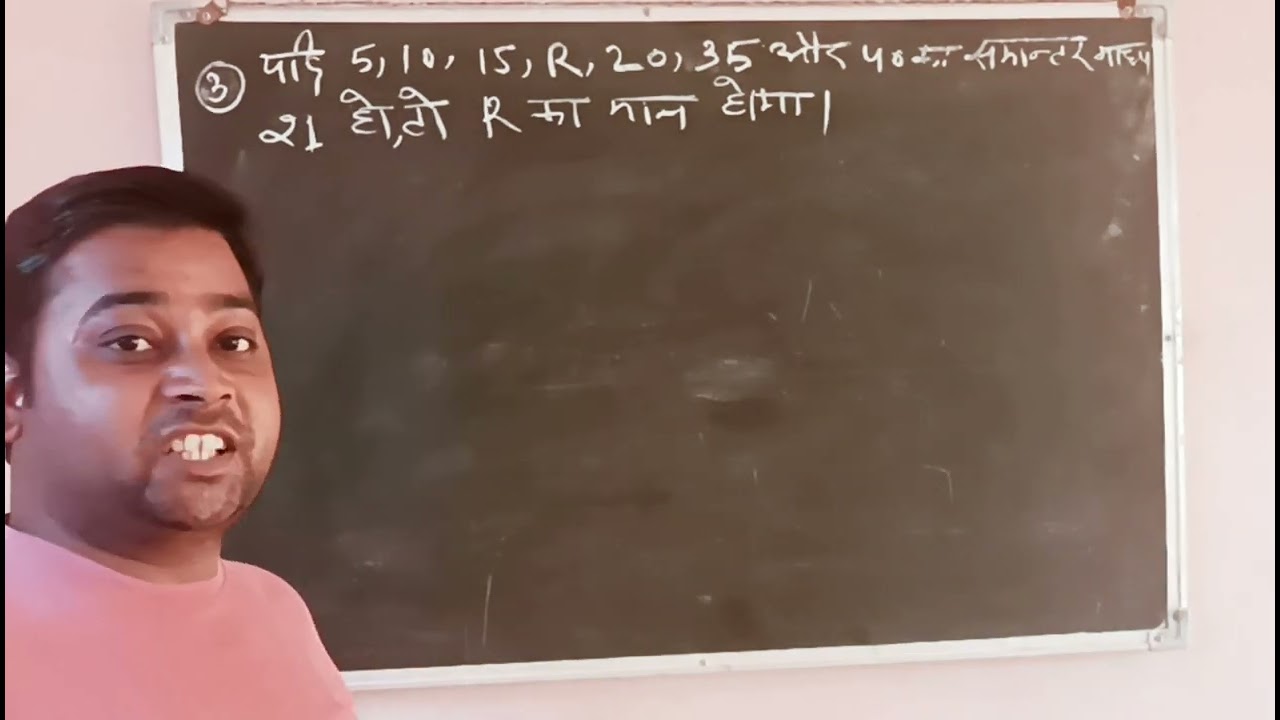 ③ यदि 5, 10, 15, R, 20, 35 और 40 का समान्तर माध्य
21 हो, तो R का मान होगा।